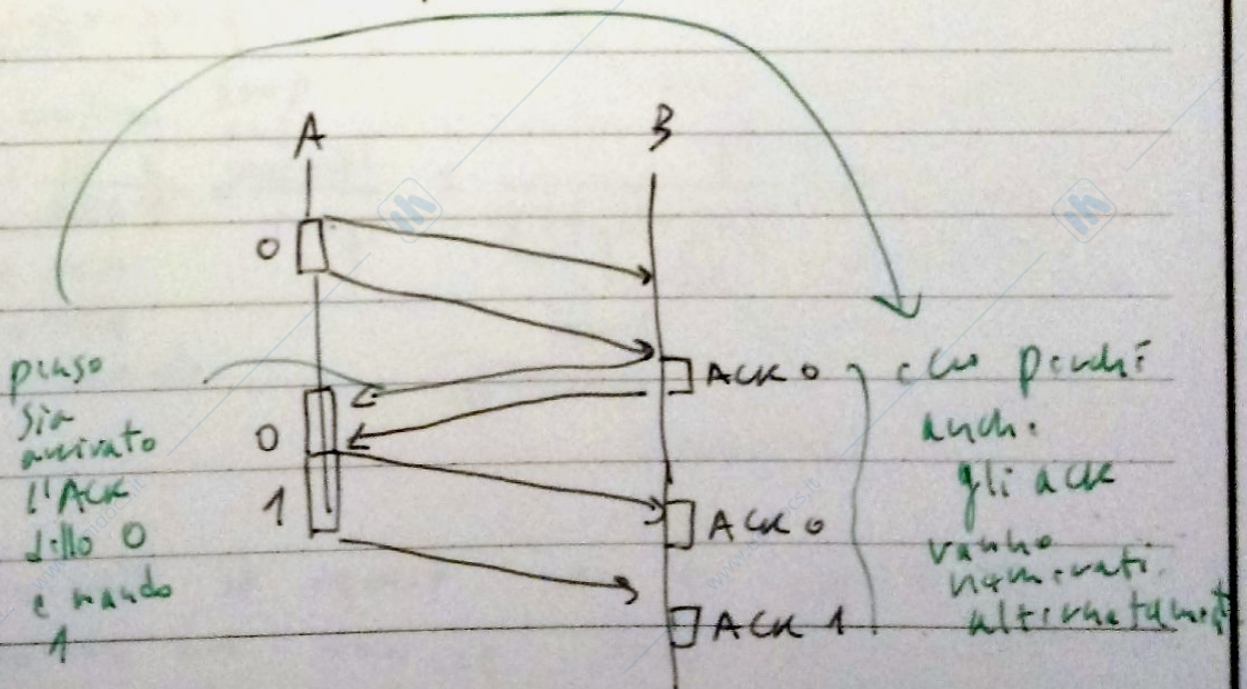 A
B
0
ACK 0
0
1
ACK 0
ACK 1
penso
sia
arrivato
l'ACK
dello 0
e mando
1
ecco perché
anche
gli ack
vanno
numerati
alternatamente